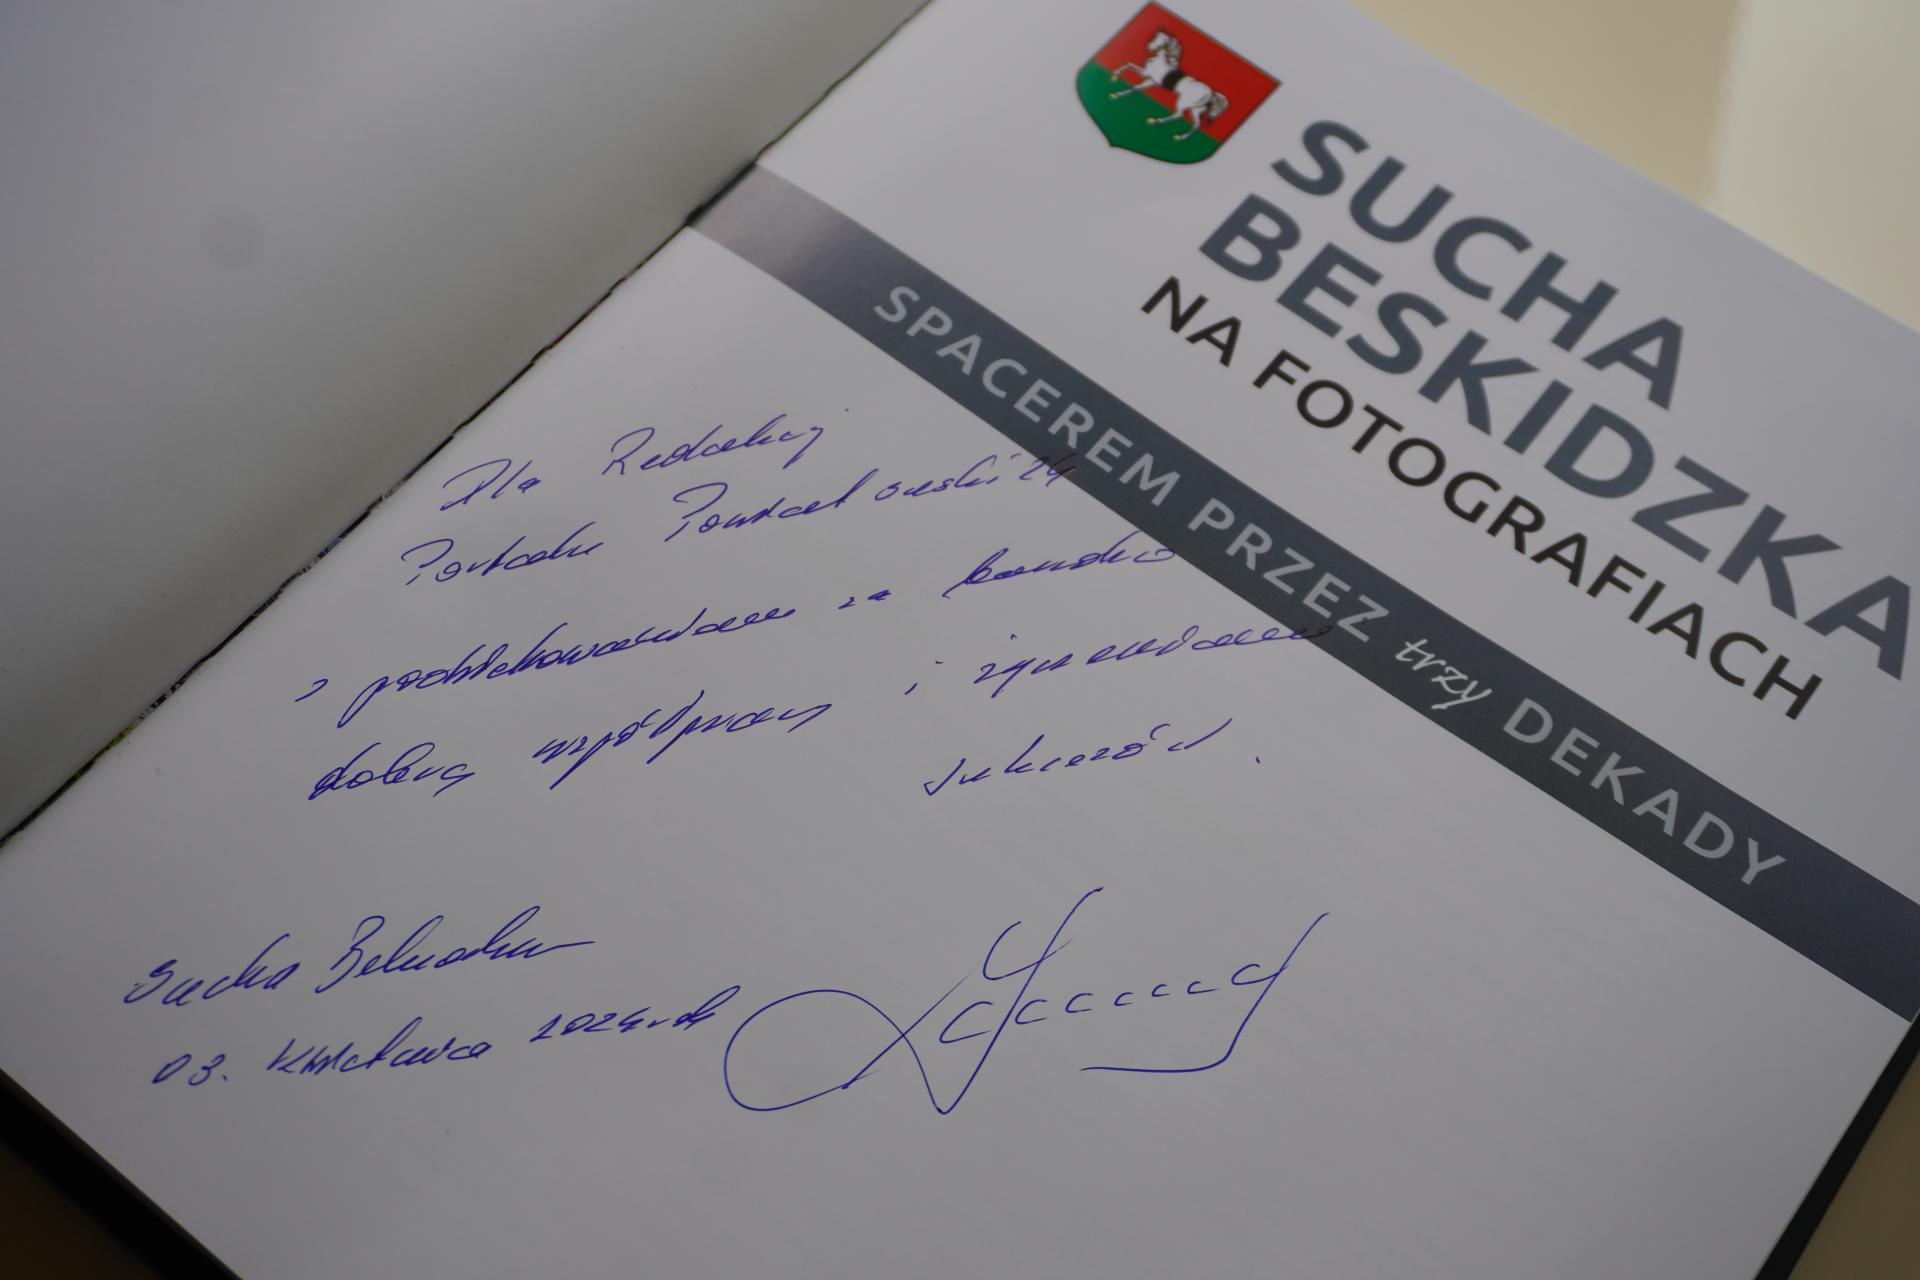 SUCHA
BESKIDZKA
NA FOTOGRAFIACH
SPACEREM PRZEZ trzy DEKADY
Dla Redakcji
Portalu Powiatsuski24
z podziękowaniami za bardzo
dobrą współpracę i życzeniami
sukcesów.
Sucha Beskidzka
03. kwietnia 2024 rok